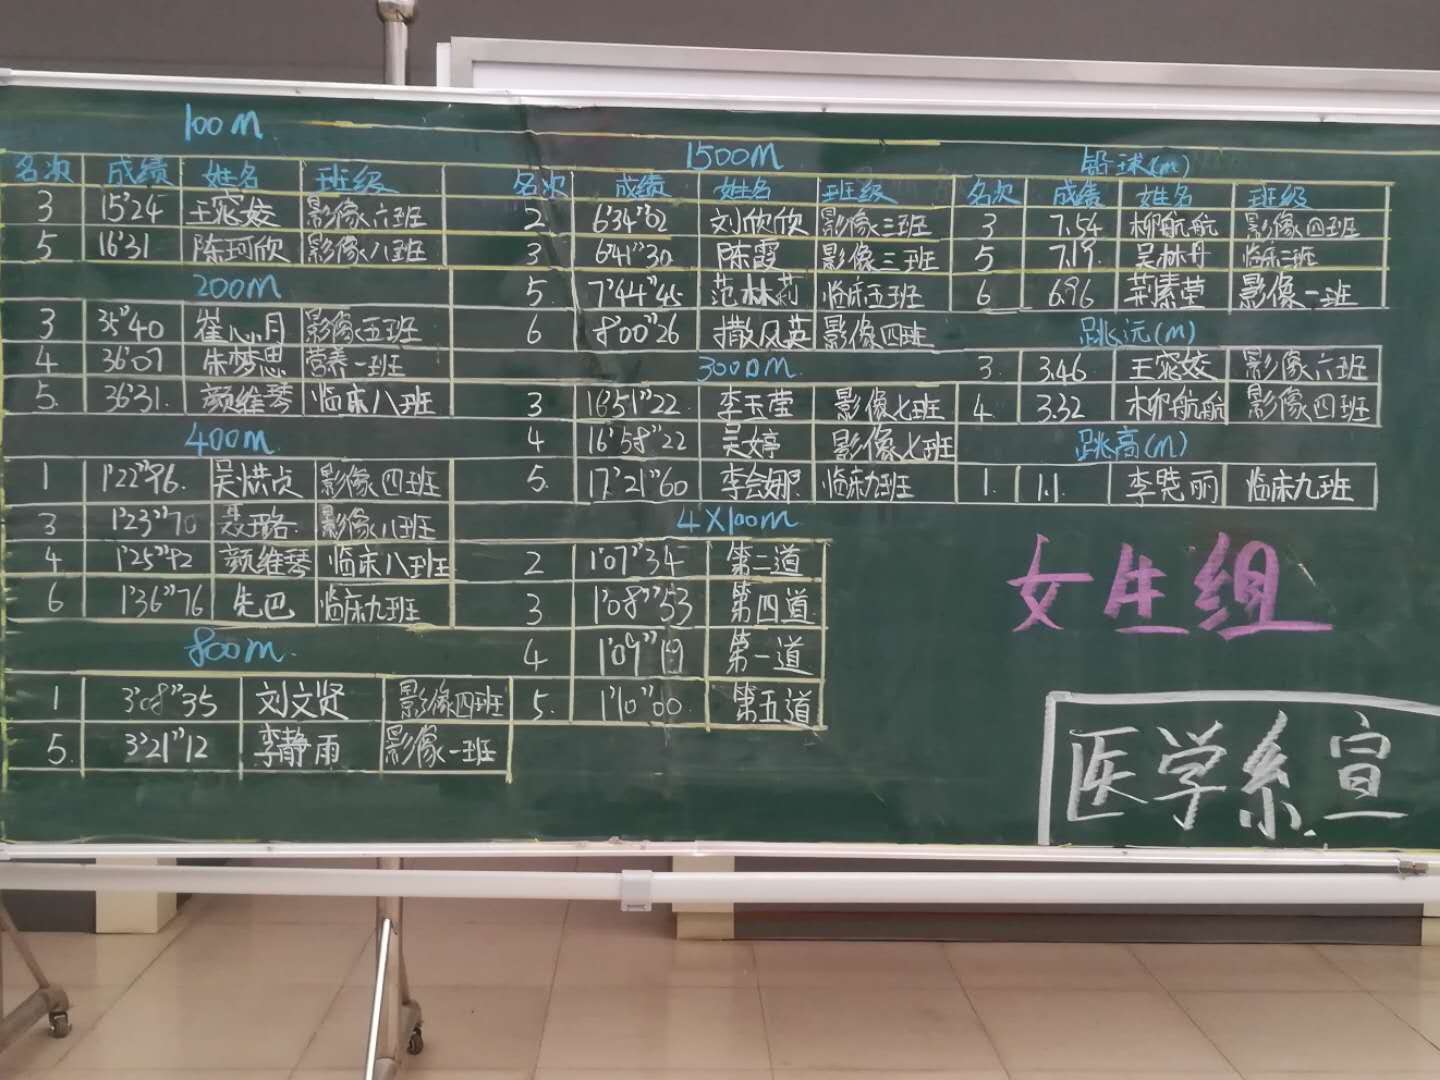 100M
名次 成绩 姓名 班级
3 15"24 王窕姣 影像六班
5 16"31 陈珂欣 影像八班
200M
3 35"40 崔心月 影像五班
4 36"07 朱梦思 营养一班
5 36"31. 颜维琴 临床八班
400M
1 1'22"96. 吴洪贞 影像四班
3 1'23"70 影像八班
4 1'25"92 颜维琴 临床八班
6 1'36"76 先巴 临床九班
800M.
1 3'08"35 刘文贤 影像四班
5. 3'21"12 李静雨 影像一班
1500M
名次 成绩 姓名 班级
2 6'34"02 刘欣欣 影像三班
3 6'41"30 陈霞 影像三班
5. 7'44"45 范林莉 临床五班
6 8'00"26 撒风英 影像四班
3000M.
3 16'51"22. 李玉莹 影像七班
4 16'58"22 吴婷 影像七班
5. 17'21"60 李会娜 临床九班
4X100M
2 1'07"34 第二道
3 1'08"53 第四道
4 1'09"19 第一道
5. 1'10"00. 第五道
铅球(m)
名次 成绩 姓名 班级
3 7.54 柳航航 影像四班
5 7.19. 吴林丹 临床二班
6 6.96 荆素莹 影像一班
跳远(m)
3. 3.46. 王窕姣 影像六班
4. 3.32 柳航航 影像四班
跳高(m)
1. 1.1. 李晓丽 临床九班
女生组
医学系宣